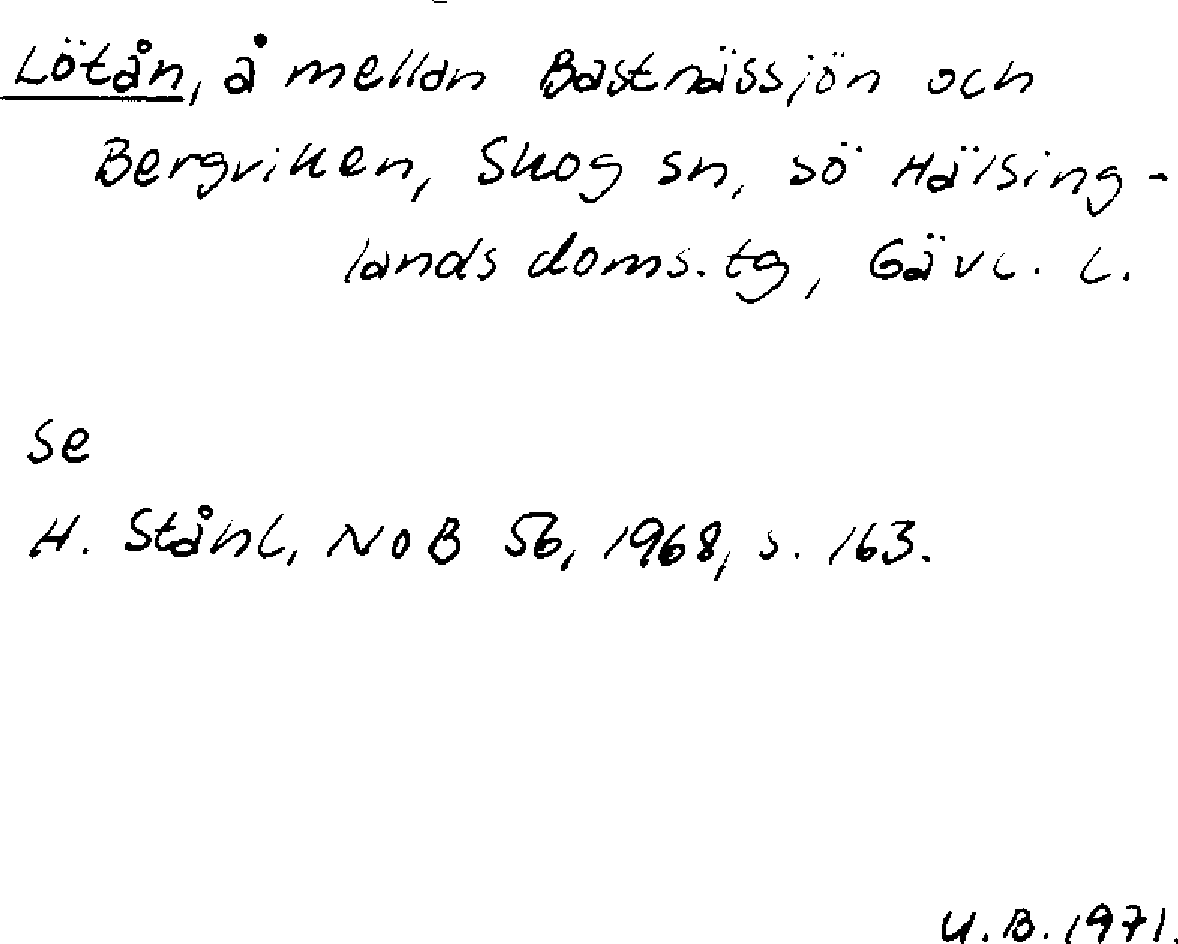 Lötån, å mellan Bastnässjön och
Bergviken, Skog sn, sö Hälsing-
lands doms.tg, Gävl. l.
se
H. Ståhl, NoB 56, 1968, s. 163.
U.B. 1971.